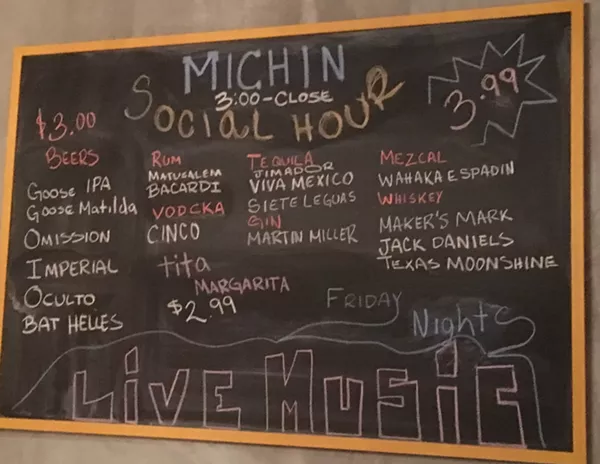 MICHIN
3:00-CLOSE
SOCIAL HOUR
3.99
$3.00
BEERS
GOOSE IPA
GOOSE Matilda
OMISSION
IMPERIAL
OCULTO
BAT HELLES
RUM
MATUSALEM
BACARDI
VODCKA
CINCO
tita
MARGARITA
$2.99
TEQUILA
JIMADOR
VIVA MEXICO
SIETE LEGUAS
GIN
MARTIN MILLER
MEZCAL
WAHAKA ESPADIN
WHISKEY
MAKER'S MARK
JACK DANIELS
TEXAS MOONSHINE
FRIDAY
Nights
LiVE MUSiC